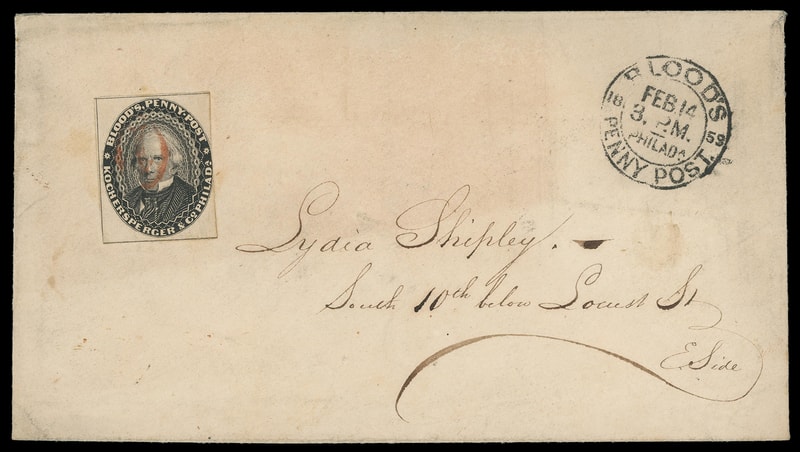 BLOOD'S, PENNY-POST
KOCHERSPERGER & CO. PHILADA.
BLOOD'S
18 59
FEB 14
3. P.M.
PHILADA
PENNY POST.
Lydia Shipley.
South 10th below Locust St
E. Side